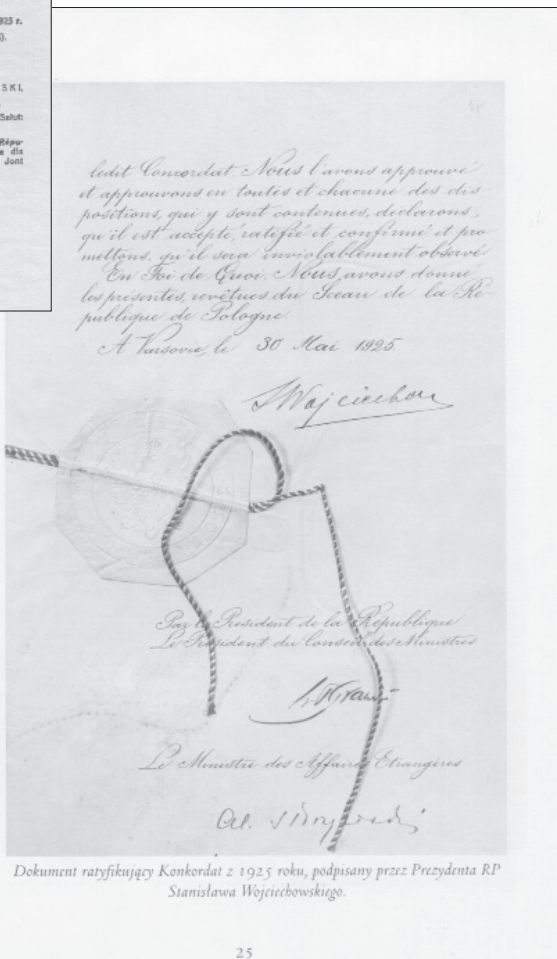 1925 r.
).
SKI,
Salut:
Répu-
e dla
Jont
ledit Concordat Nous l'avons approuvé
et approuvons en toutes et chacune des dis-
positions, qui y sont contenues, déclarons,
qu'il est accepté, ratifié et confirmé et pro
mettons, qu'il sera inviolablement observé
En Foi de Quoi, Nous avons donné
les présentes, revêtues du Sceau de la Ré-
publique de Pologne.
A Varsovie, le 30 Mai 1925.
SWojciechow
Par le Président de la République
Le Président du Conseil des Ministres
Le Ministre des Affaires Etrangères
Al.
Dokument ratyfikujący Konkordat z 1925 roku, podpisany przez Prezydenta RP
Stanisława Wojciechowskiego.
25